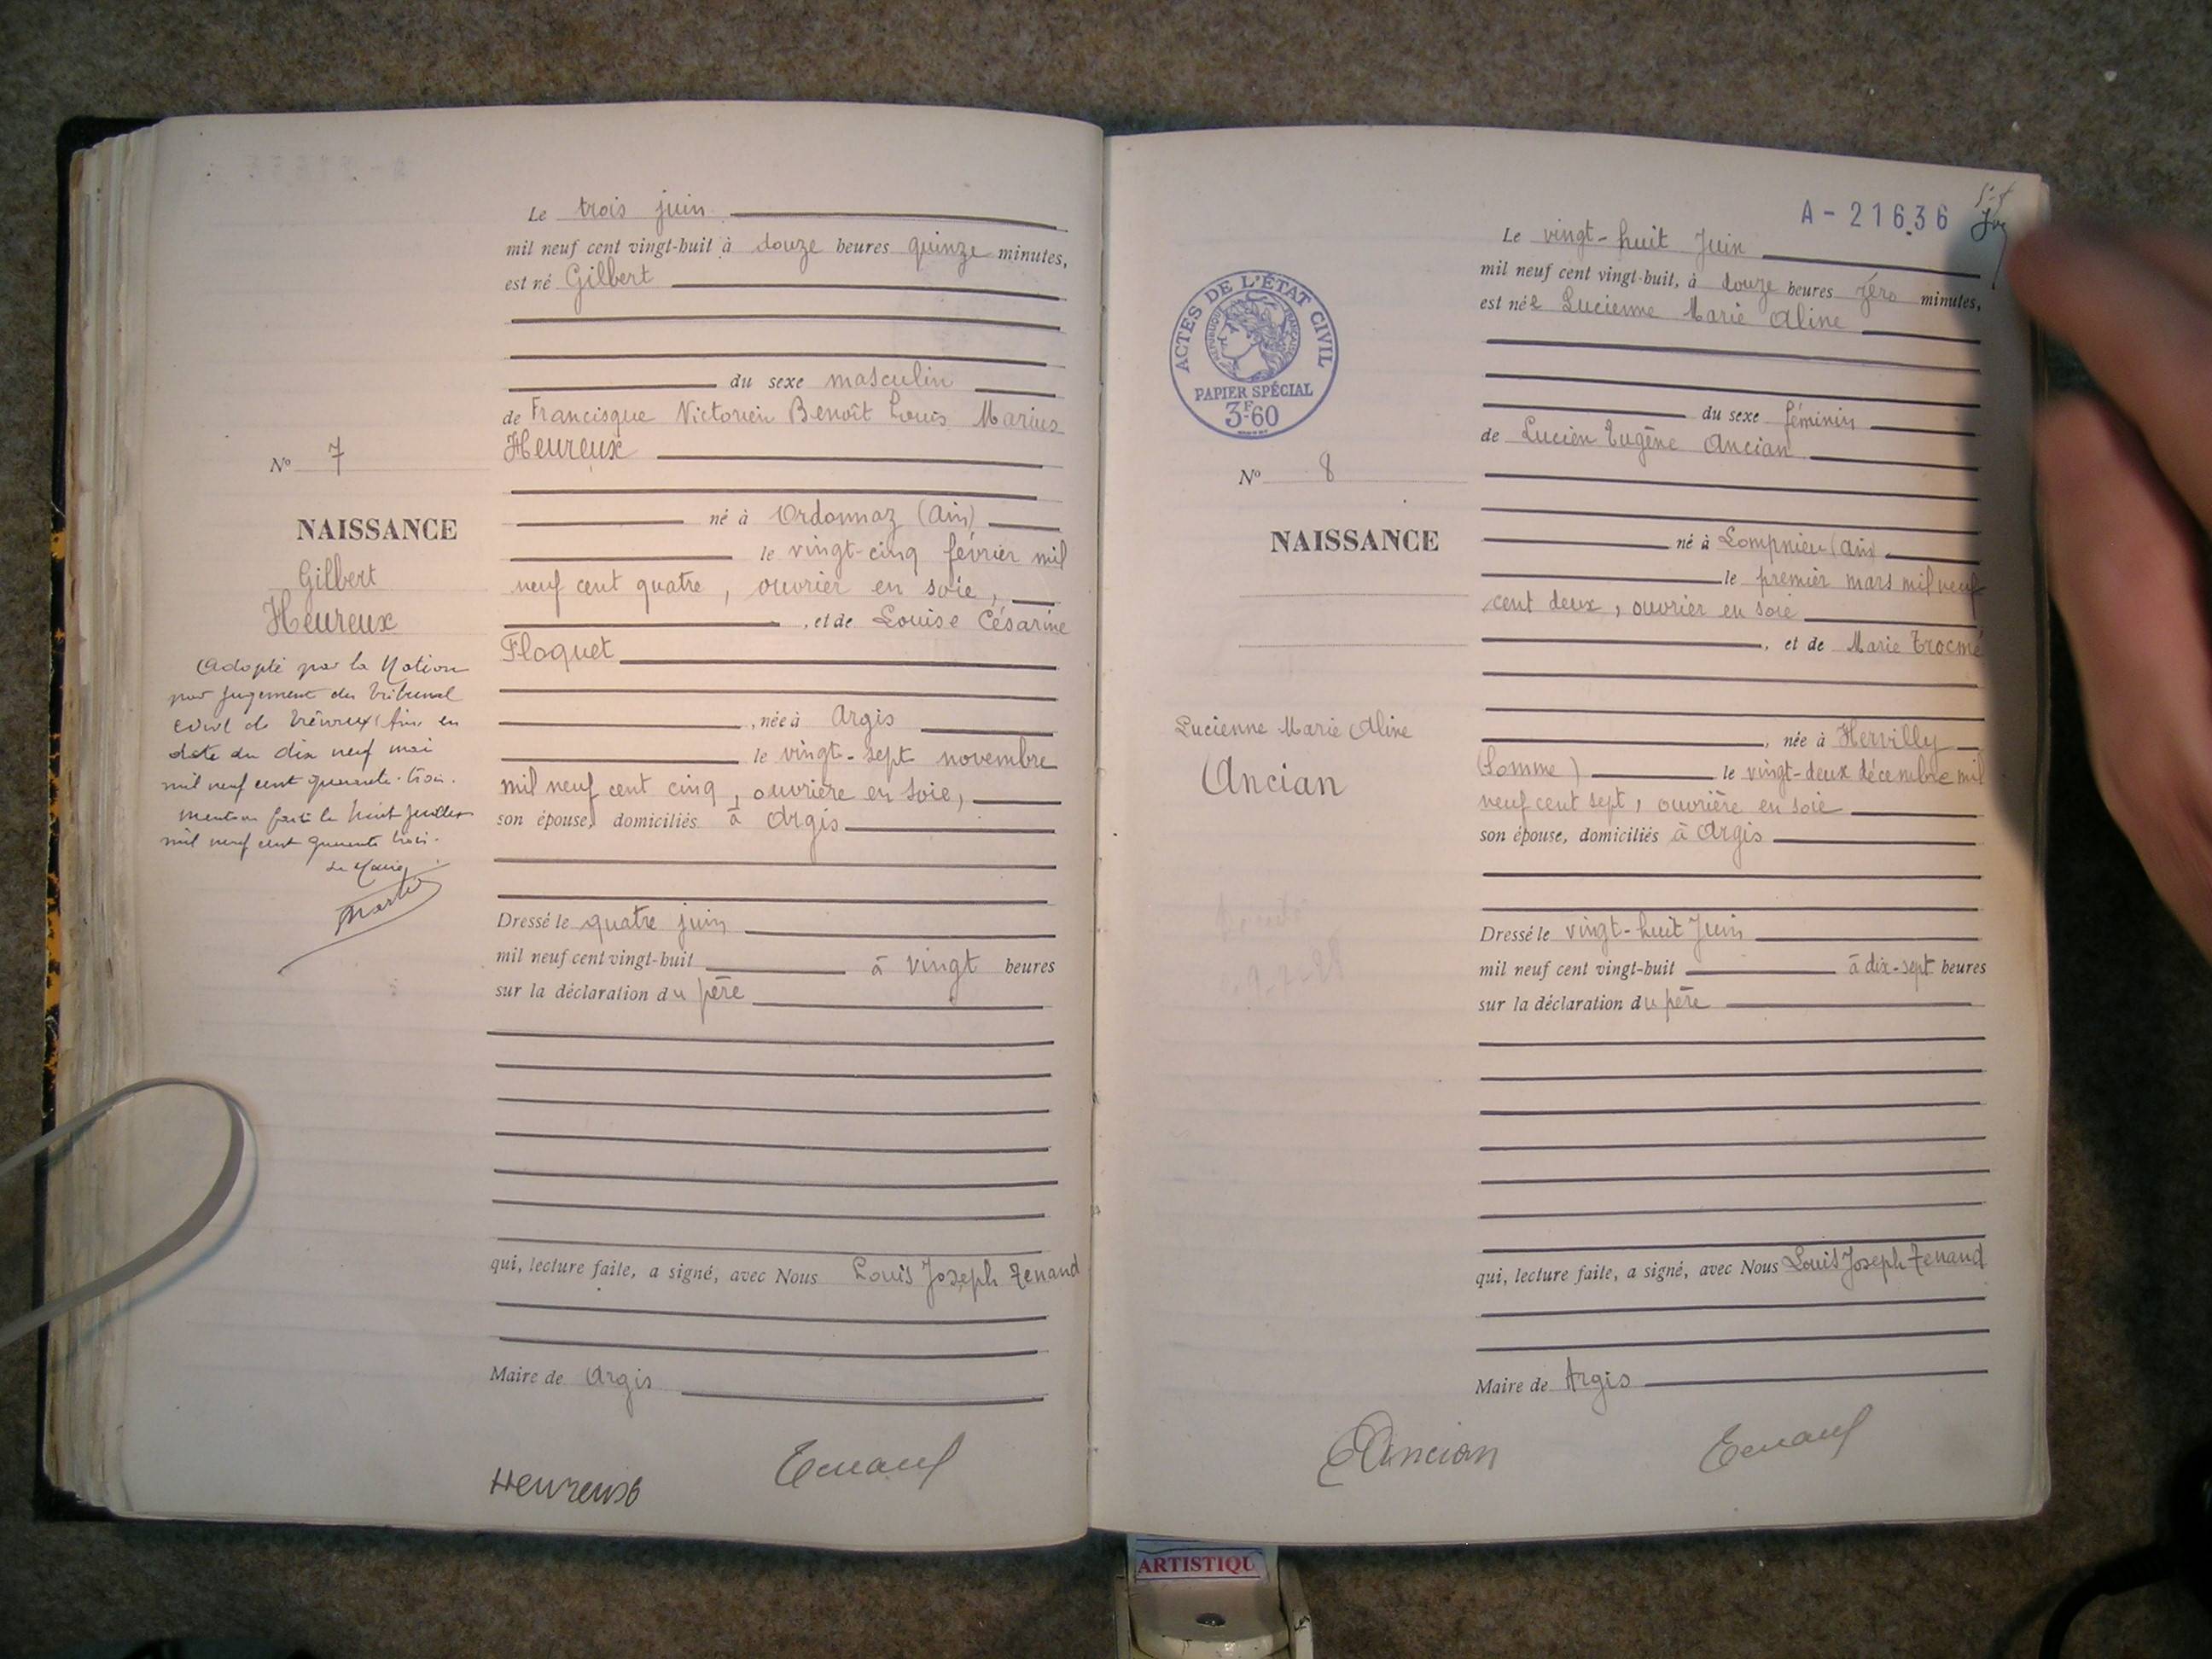 Le trois juin
mil neuf cent vingt-huit à douze heures quinze minutes,
est né Gilbert
du sexe masculin
de Francisque Victorien Benoît Louis Marius
Heureux
né à Ordonnaz (Ain)
le vingt-cinq février mil
neuf cent quatre, ouvrier en soie,
, et de Louise Césarine
Floquet
, née à Argis
le vingt-sept novembre
mil neuf cent cinq, ouvrière en soie,
son épouse, domiciliés à Argis
Dressé le quatre juin
mil neuf cent vingt-huit à vingt heures
sur la déclaration du père
qui, lecture faite, a signé, avec Nous Louis Joseph Tenand
Maire de Argis
Heureux Tenand
No 7
NAISSANCE
Gilbert
Heureux
Adopté par la Nation
par jugement du tribunal
civil de Trévoux (Ain) en
date du dix neuf mai
mil neuf cent quarante-trois.
mention faite le huit juillet
mil neuf cent quarante trois.
Le Maire
A-21636
ACTES DE L'ÉTAT CIVIL
RÉPUBLIQUE FRANÇAISE
PAPIER SPÉCIAL
3F60
No 8
NAISSANCE
Lucienne Marie Aline
Ancian
Le vingt-huit Juin
mil neuf cent vingt-huit, à douze heures zéro minutes,
est née Lucienne Marie Aline
du sexe féminin
de Lucien Eugène Ancian
né à Lompnieu (Ain)
le premier mars mil neuf
cent deux, ouvrier en soie
, et de Marie Trocmé
, née à Hervilly
(Somme) le vingt-deux décembre mil
neuf cent sept, ouvrière en soie
son épouse, domiciliés à Argis
Dressé le vingt-huit Juin
mil neuf cent vingt-huit à dix-sept heures
sur la déclaration du père
qui, lecture faite, a signé, avec Nous Louis Joseph Tenand
Maire de Argis
Ancian Tenand
ARTISTIQU